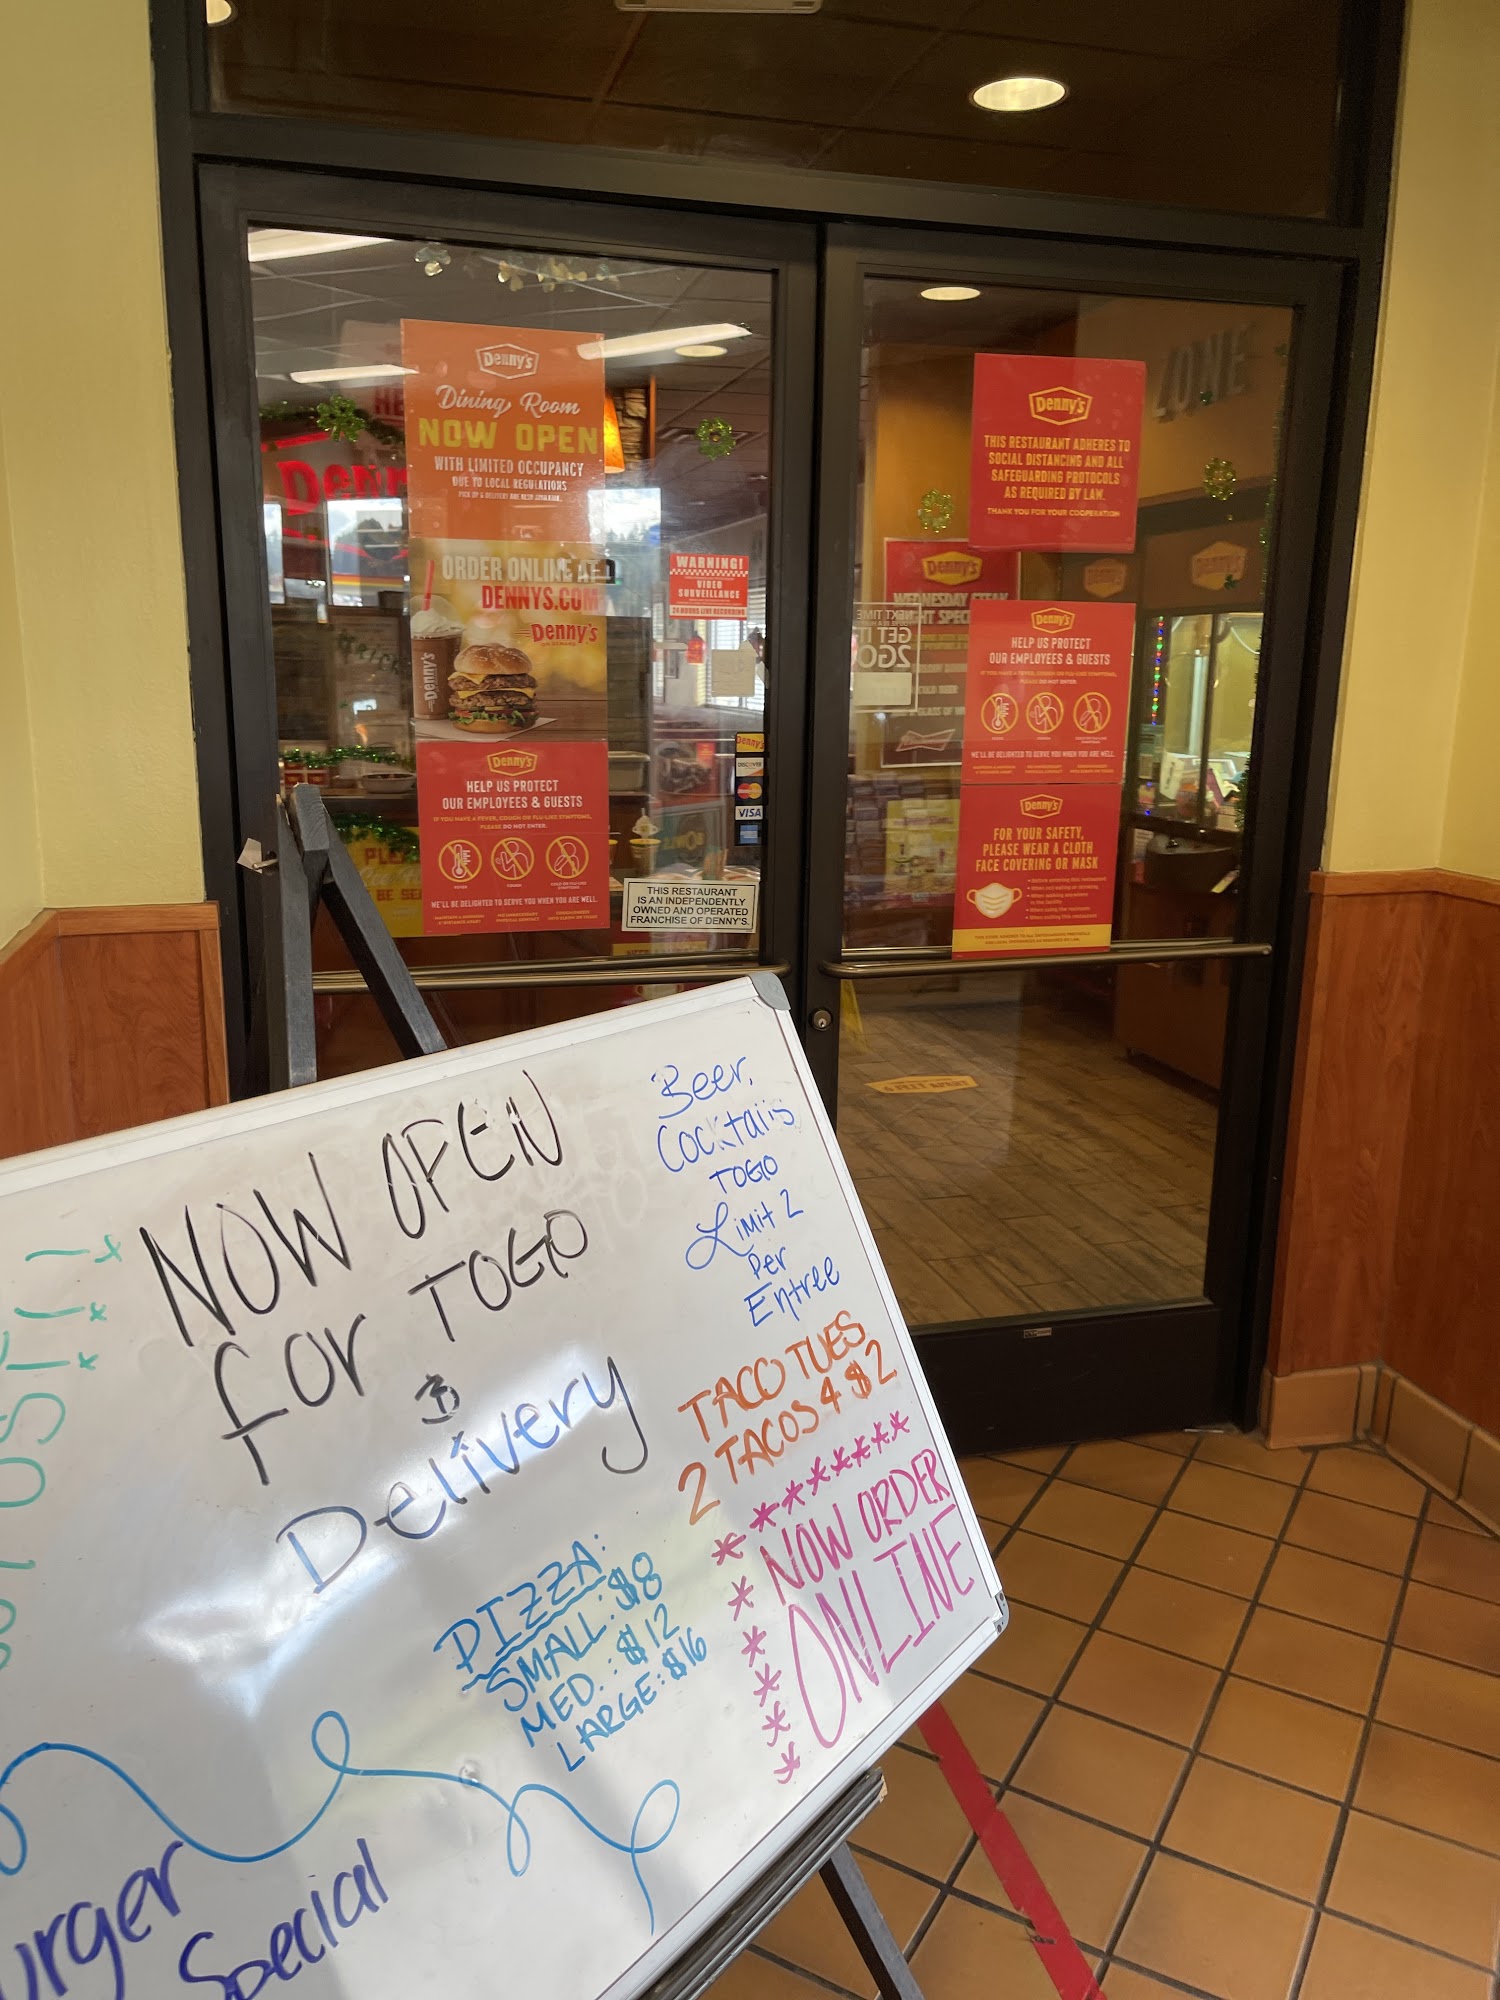 Denny's
Dining Room
NOW OPEN
WITH LIMITED OCCUPANCY
DUE TO LOCAL REGULATIONS
ORDER ONLINE AT
DENNYS.COM
Denny's
Denny's
Denny's
HELP US PROTECT
OUR EMPLOYEES & GUESTS
IF YOU HAVE A FEVER, COUGH OR FLU-LIKE SYMPTOMS,
PLEASE DO NOT ENTER.
FEVER
COUGH
WE'LL BE DELIGHTED TO SERVE YOU WHEN YOU ARE WELL.
WARNING!
VIDEO
SURVEILLANCE
24 HOURS LIVE RECORDING
Denny's
DISCOVER
MasterCard
VISA
THIS RESTAURANT
IS AN INDEPENDENTLY
OWNED AND OPERATED
FRANCHISE OF DENNY'S.
Denny's
THIS RESTAURANT ADHERES TO
SOCIAL DISTANCING AND ALL
SAFEGUARDING PROTOCOLS
AS REQUIRED BY LAW.
THANK YOU FOR YOUR COOPERATION
Denny's
WEDNESDAY STEAK
NEXT TIME
GET IT
2GO
Denny's
HELP US PROTECT
OUR EMPLOYEES & GUESTS
IF YOU HAVE A FEVER, COUGH OR FLU-LIKE SYMPTOMS,
PLEASE DO NOT ENTER.
WE'LL BE DELIGHTED TO SERVE YOU WHEN YOU ARE WELL.
Denny's
FOR YOUR SAFETY,
PLEASE WEAR A CLOTH
FACE COVERING OR MASK
Denny's
Denny's
6 FEET APART
NOW OPEN
for TOGO
&
Delivery
Beer,
Cocktails
TOGO
Limit 2
Per
Entree
TACO TUES
2 TACOS 4 $2
NOW ORDER
ONLINE
PIZZA:
SMALL: $8
MED.: $12
LARGE: $16
Special